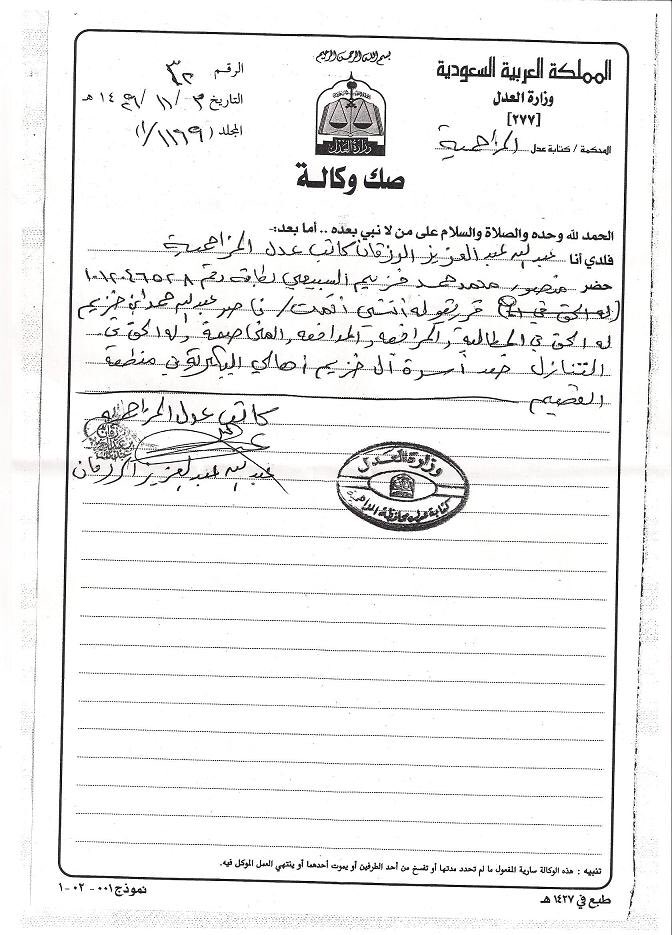 بسم الله الرحمن الرحيم
المملكة العربية السعودية
وزارة العدل
[٢٧٧]
المحكمة / كتابة عدل المزاحمية
الرقم ٣٢
التاريخ ٣ / ١١ / ١٤٢٩ هـ
المجلد (١١٦٩/١)
وزارة العدل
صك وكالة
الحمد لله وحده والصلاة والسلام على من لا نبي بعده .. أما بعد:-
فلدي أنا عبد الله عبد العزيز الزرقان كاتب عدل المزاحمية
حضر منصور محمد حمد خزيم السبيعي بطاقة رقم ١٠١٢٠٤٦٥٢٨
قرر بقوله إنني أقمت / ناصر عبد الله حمد ابن خزيم
له الحق في المطالبة والمرافعة والمدافعة والمخاصمة وله الحق في
التنازل ضد أسرة آل خزيم أهالي البكيرية في منطقة
القصيم
كاتب عدل المزاحمية
عبد الله عبد العزيز الزرقان
وزارة العدل
كتابة عدل محافظة المزاحمية
تنبيه : هذه الوكالة سارية المفعول ما لم تحدد مدتها أو تفسخ من أحد الطرفين أو يموت أحدهما أو ينتهي العمل الموكل فيه.
طبع في ١٤٢٧ هـ
نموذج ٠٠١ - ٠٢ - ١